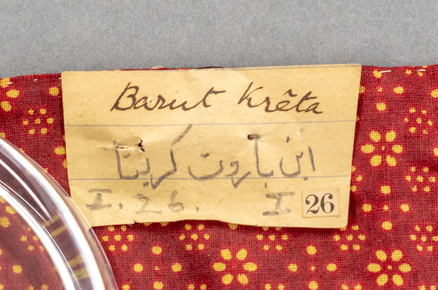 Barut Krêta
ابن باروت كريتا
I. 26. I 26